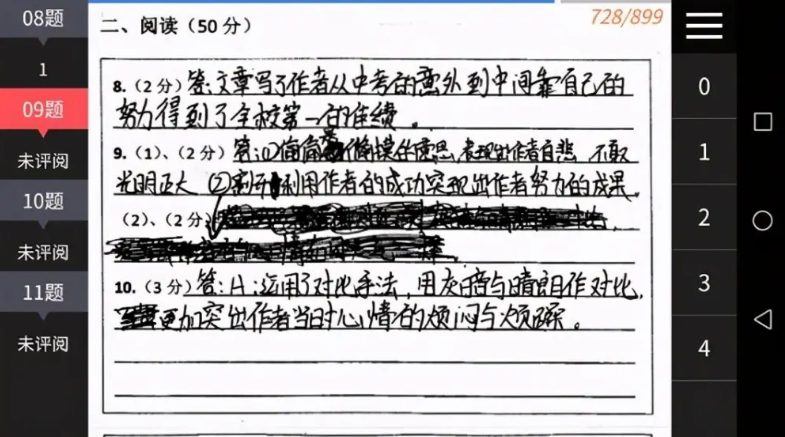 08题
1
09题
未评阅
10题
未评阅
11题
未评阅
728/899
二、阅读（50 分）
8.（2 分）答:文章写了作者从中考的意外到中间靠自己的
努力得到了全校第一的佳绩。
9.（1）、（2 分）答:①偷偷 作者自悲,不敢
光明正大 ② 利用作者的成功突现出作者努力的成果。
（2）、（2 分）
10.（3 分）答:H:运用了对比手法,用灰暗与晴朗作对比,
更加突出作者当时心情的烦闷与烦躁。
0
1
2
3
4